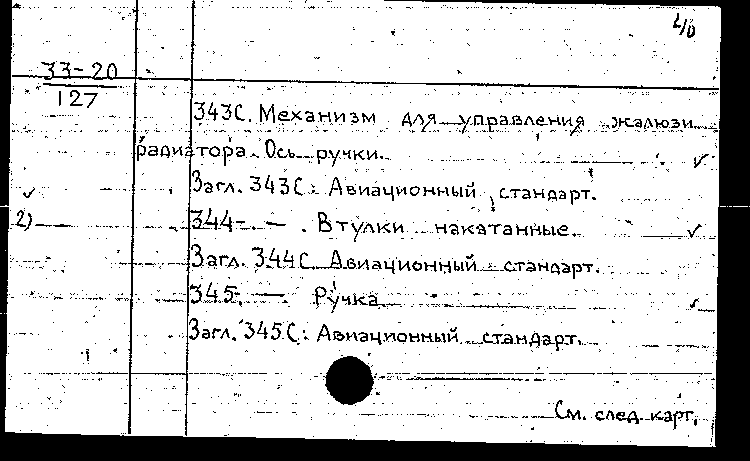 33-20
127
343С. Механизм для управления жалюзи
радиатора. Ось ручки.
Загл. 343С: Авиационный стандарт.
2) 344- — . Втулки накатанные.
Загл. 344С. Авиационный стандарт.
345. — . Ручка
Загл. 345С: Авиационный стандарт.
См. след. карт.